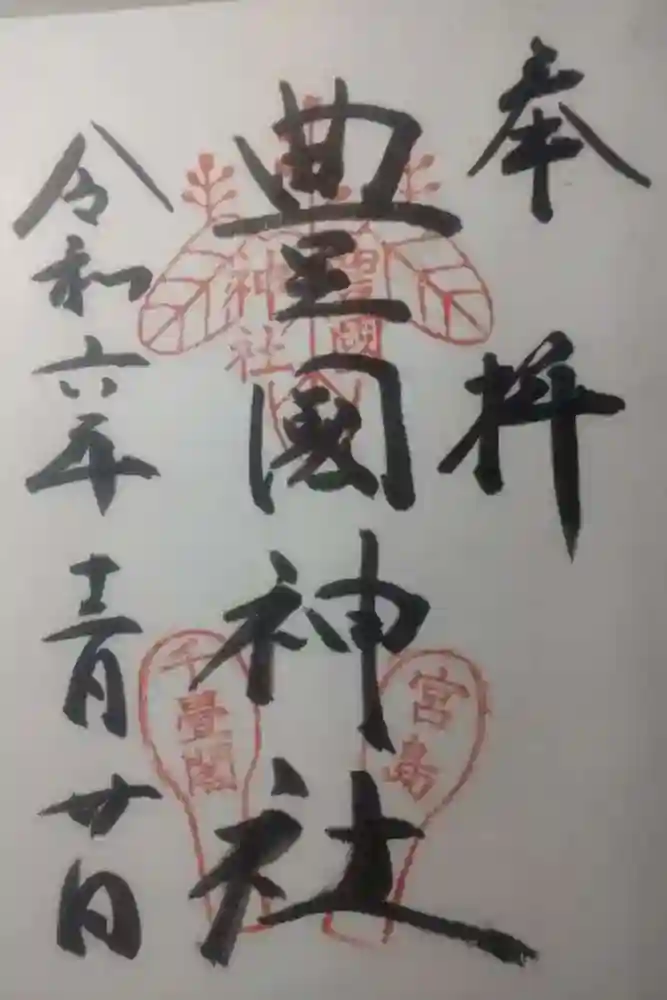 奉拝
豊國神社
豊國
神社
宮島
千畳閣
令和六年十一月廿日